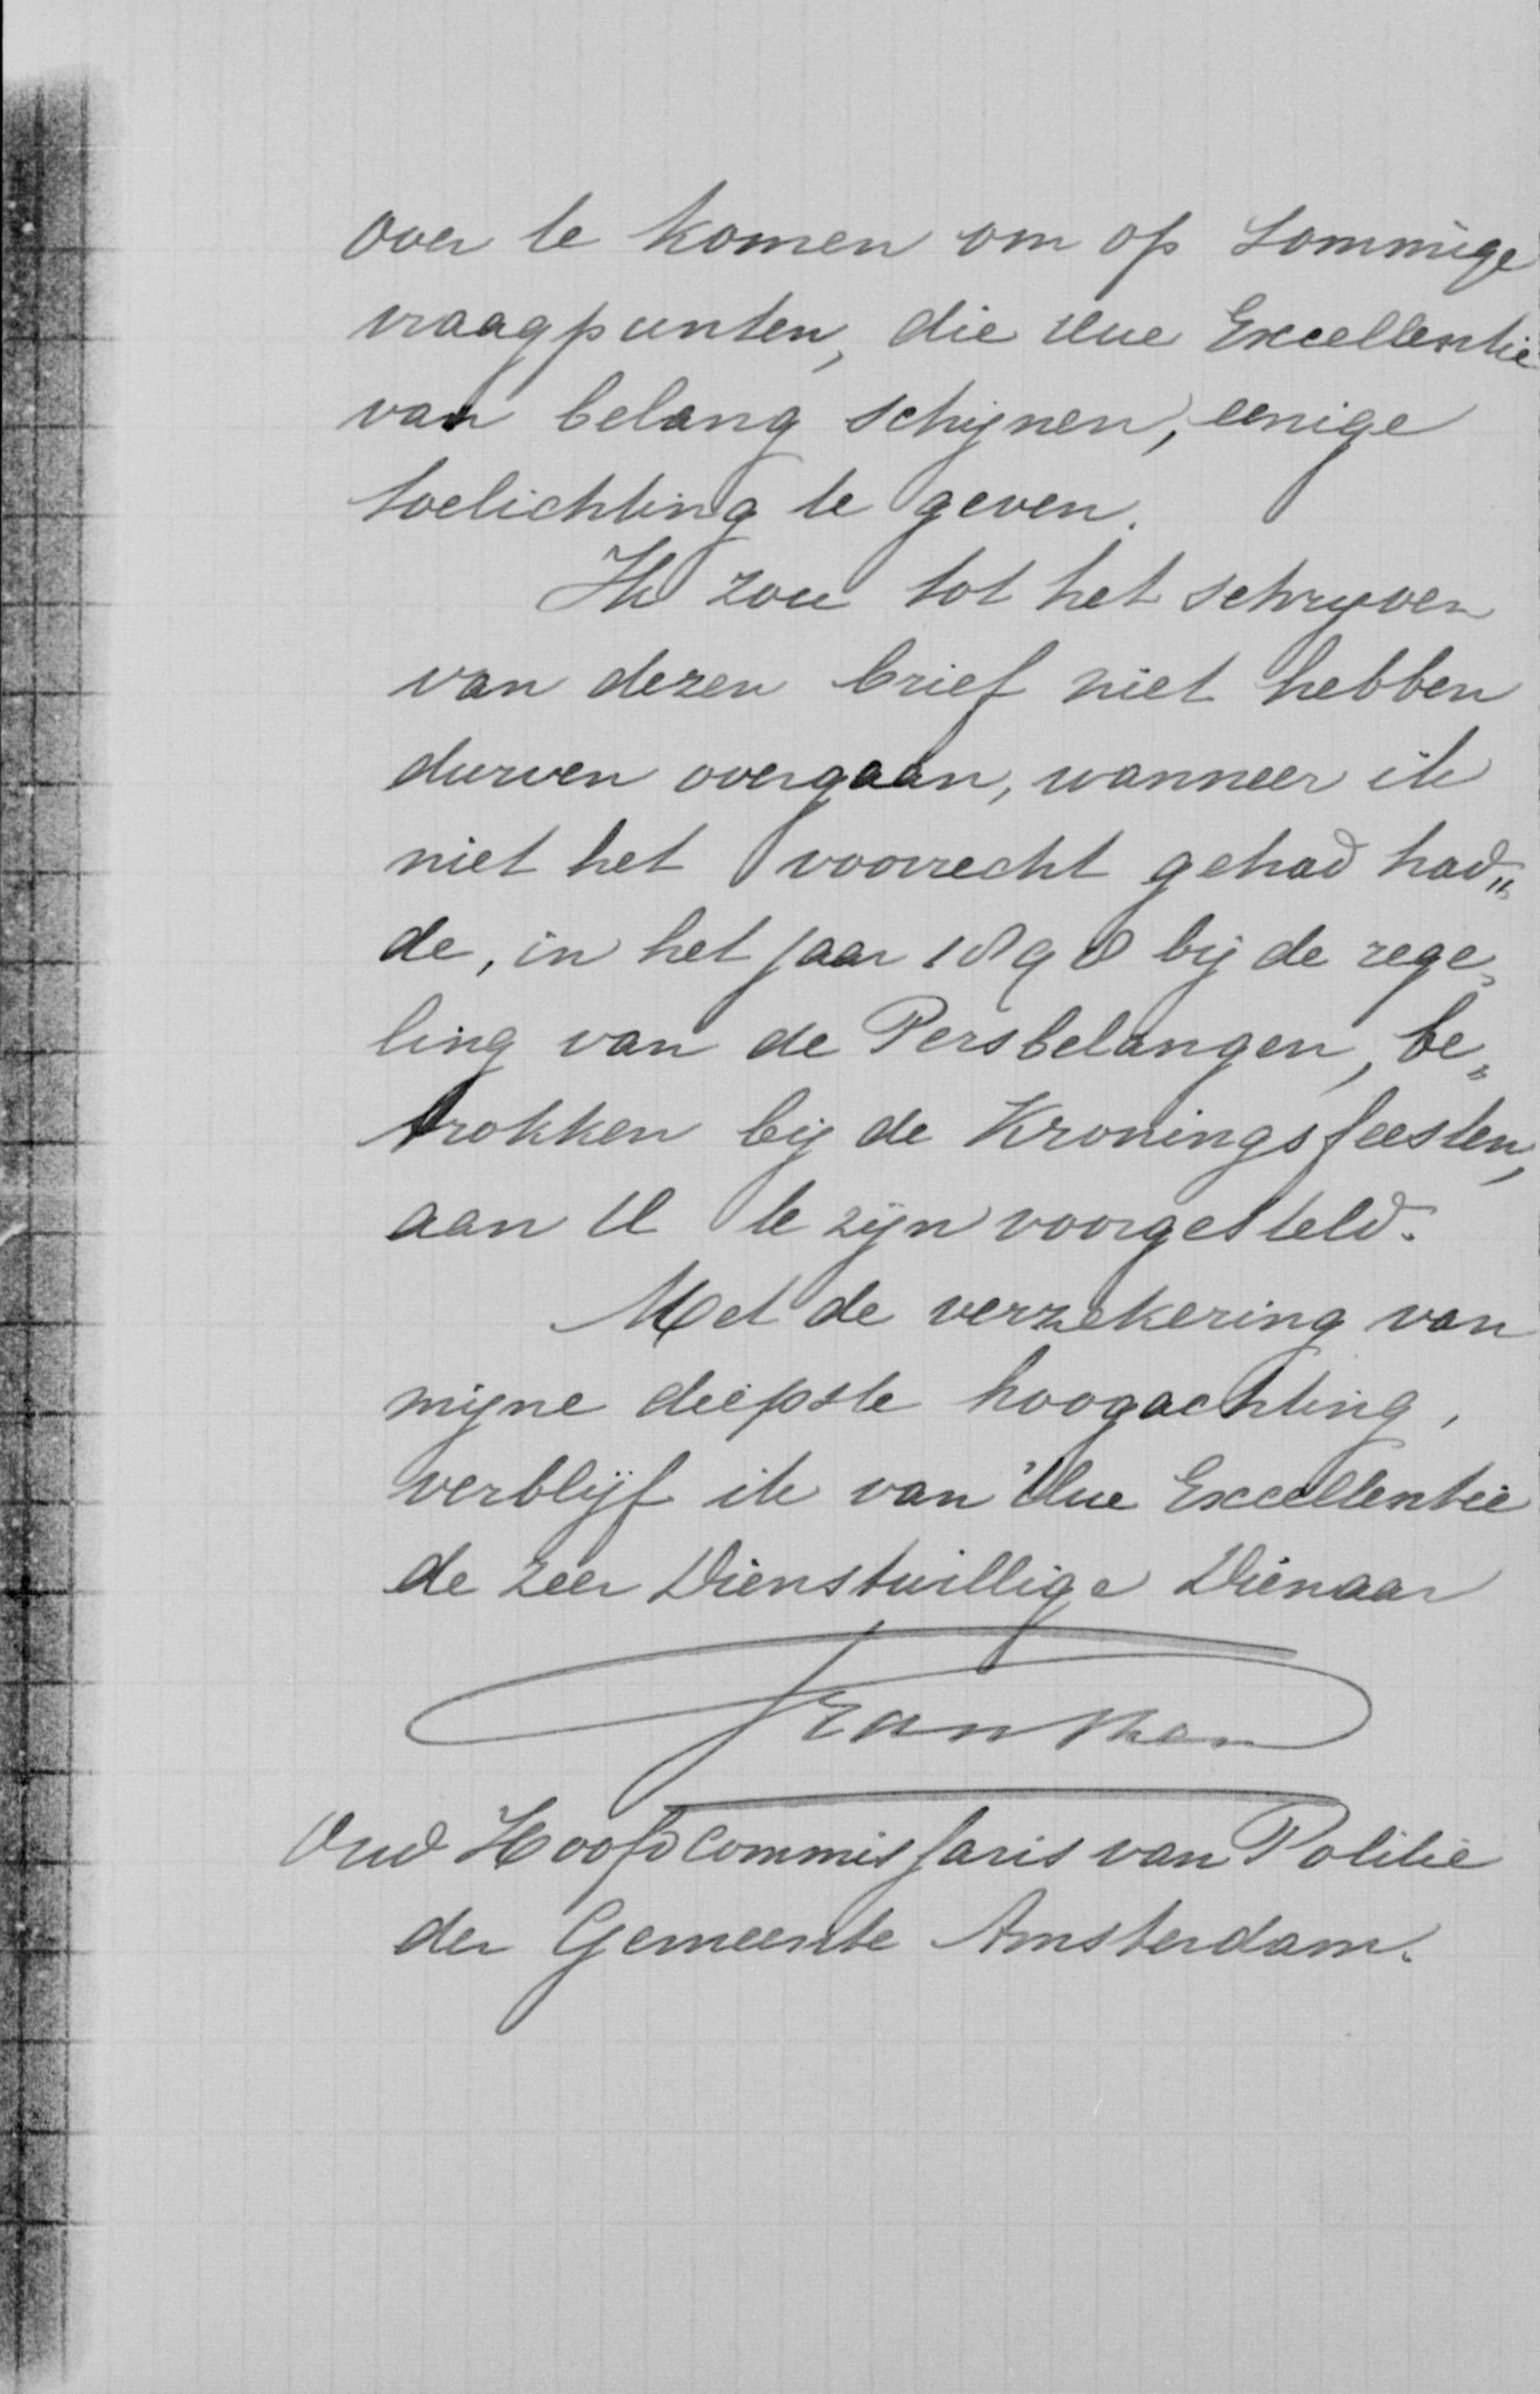 over te komen om op sommige
vraagpunten, die Uue Excellentie
van belang schijnen, eenige
toelichting te geven.
Ik zou tot het schryven
van dezen brief niet hebben
durven overgaan, wanneer ik
niet het voorrecht gehad had„
de, in het jaar 1898 bij de rege„
ling van de Persbelangen, be„
trokken bij de Kroningsfeesten,
aan U te zijn voorgesteld.
Met de verzekering van
mijne diepste hoogachting,
verblijf ik van Uue Excellentie
de zeer Dienstwillige Dienaar
Franken
Oud Hoofdcommissaris van Politie
der Gemeente Amsterdam.